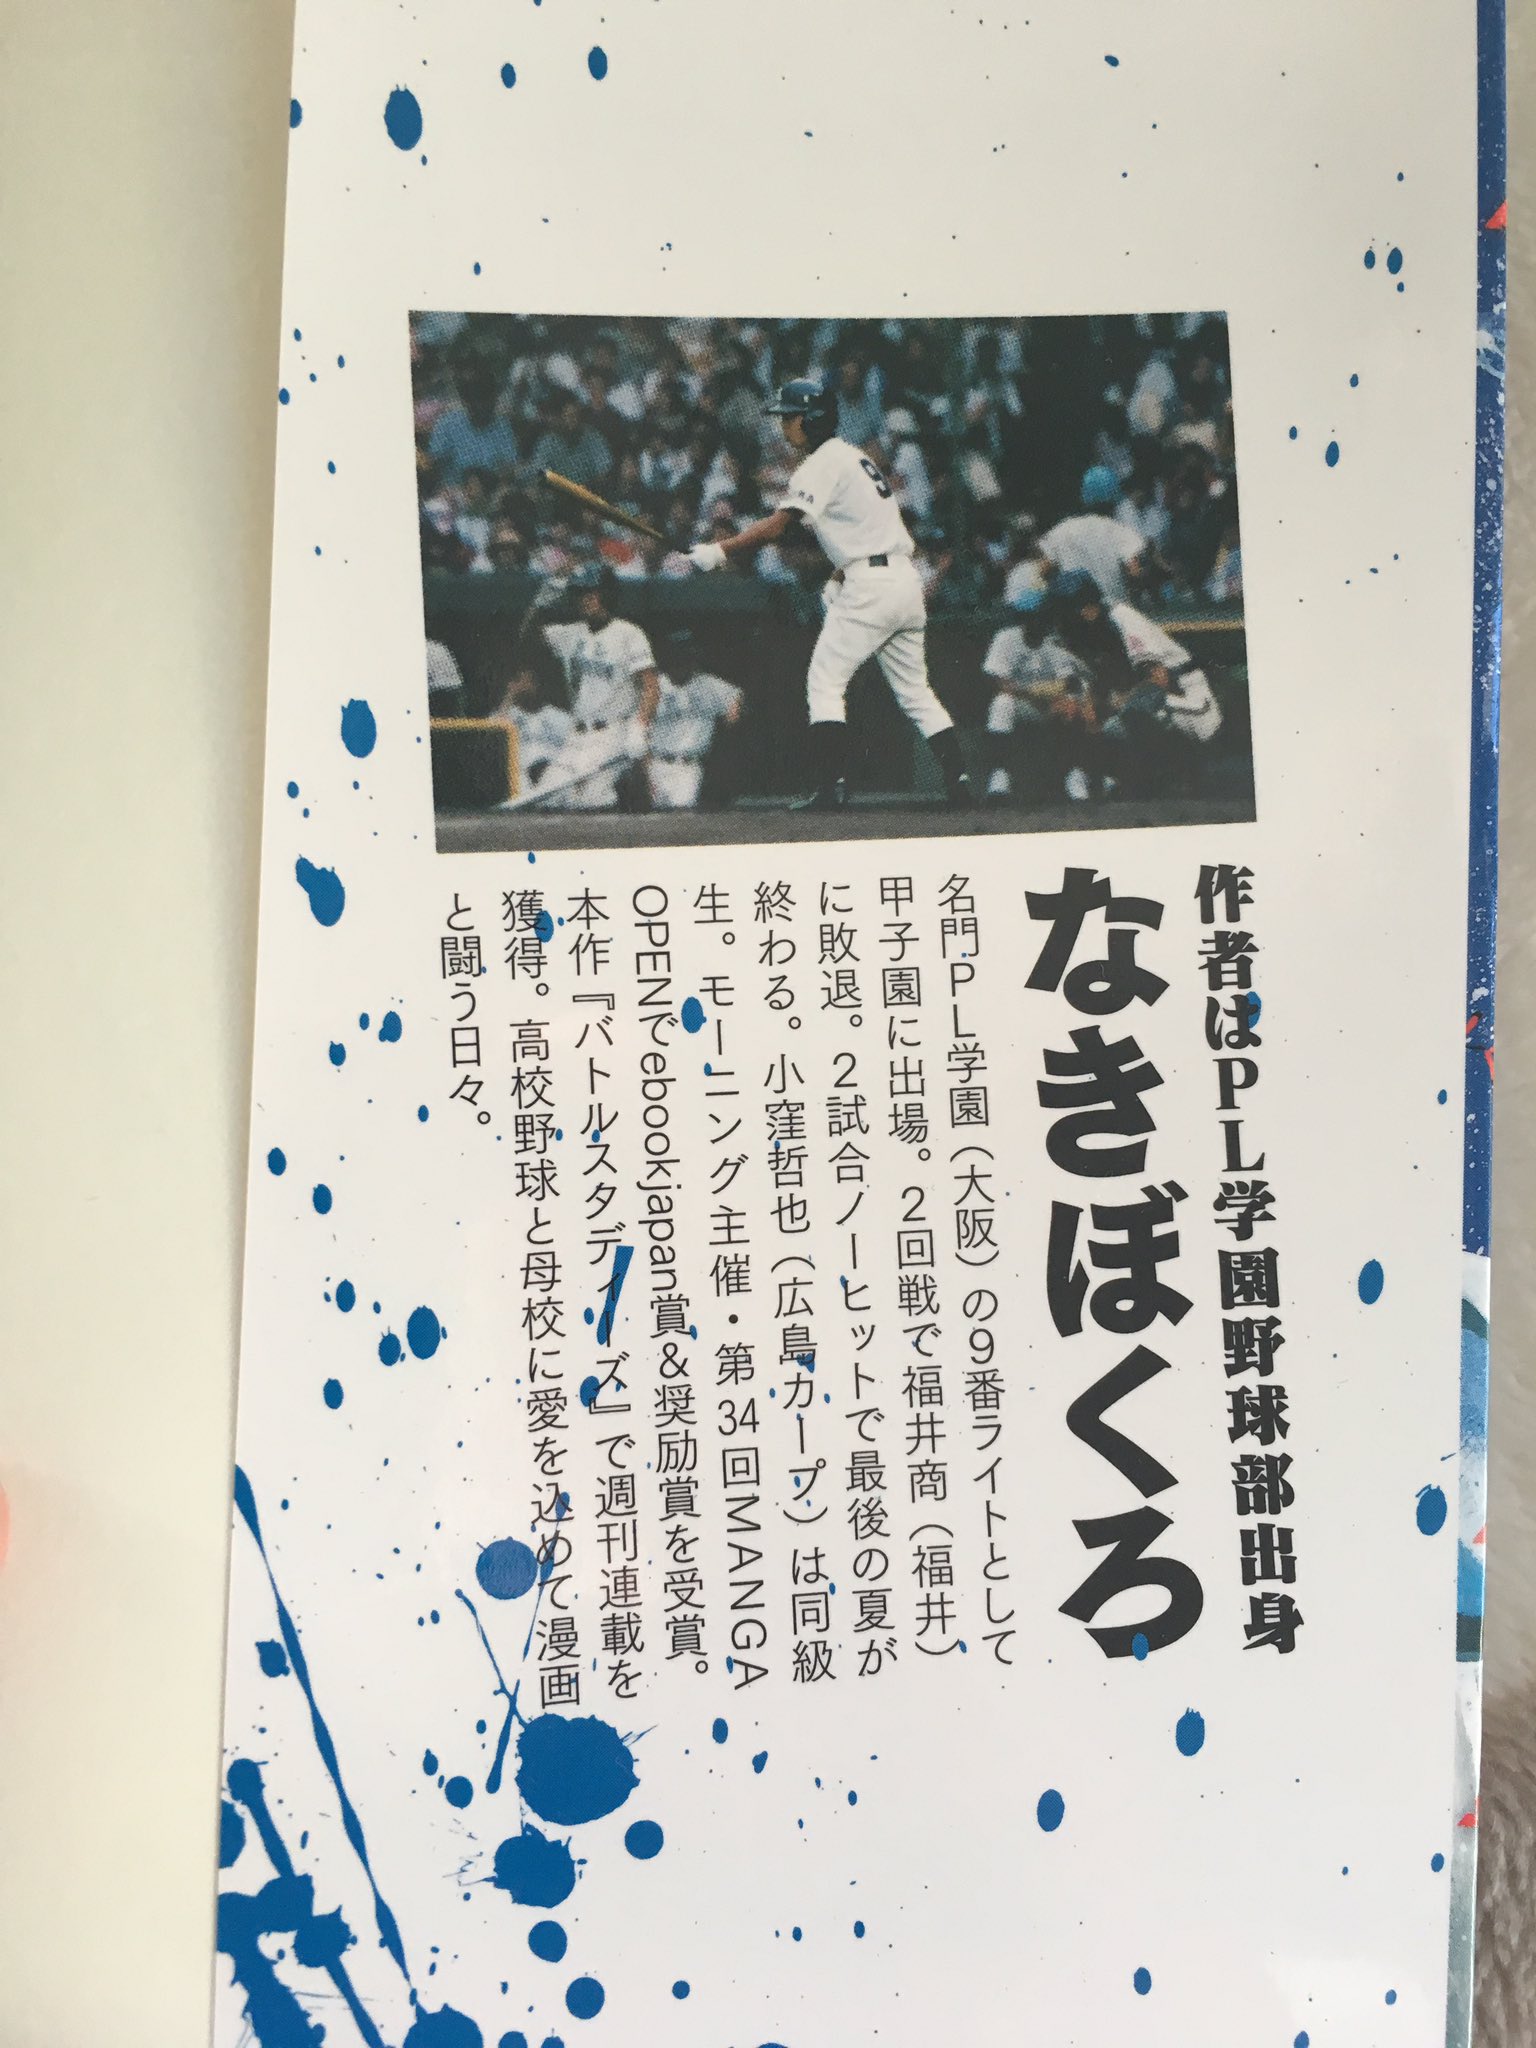 作者はPL学園野球部出身
なきぼくろ
名門PL学園(大阪)の9番ライトとして
甲子園に出場。2回戦で福井商(福井)
に敗退。2試合ノーヒットで最後の夏が
終わる。小窪哲也(広島カープ)は同級
生。モーニング主催・第34回MANGA
OPENでebookjapan賞&奨励賞を受賞。
本作『バトルスタディーズ』で週刊連載を
獲得。高校野球と母校に愛を込めて漫画
と闘う日々。
9